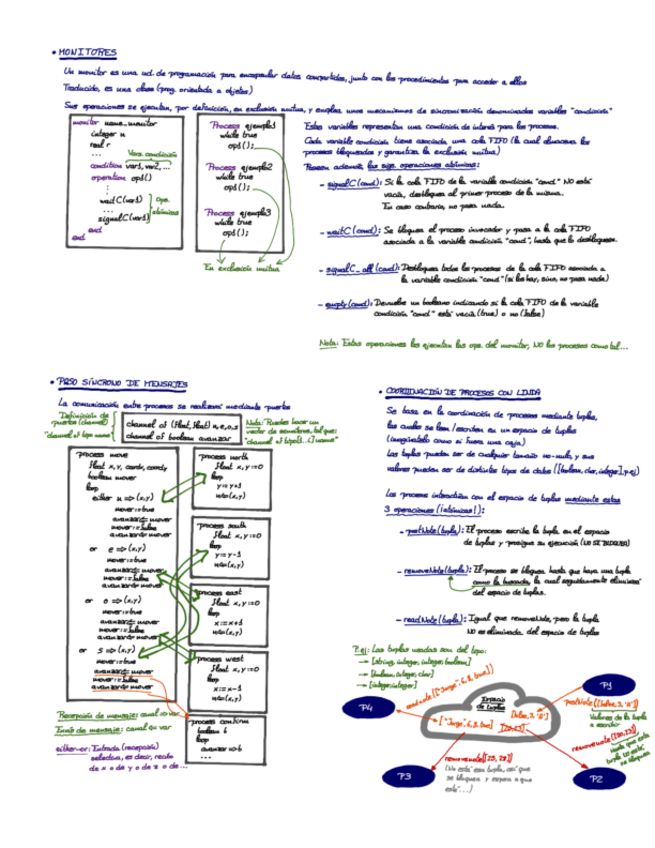 • MONITORES
Un monitor es una ud. de programación para encapsular datos compartidos, junto con los procedimientos para acceder a ellos
Traducido, es una clase (prog. orientada a objetos)
Sus operaciones se ejecutan, por definición, en exclusión mutua, y emplea unos mecanismos de sincronización denominados variables "condición"
monitor name_monitor
integer n
real r
...
Vars. condición
condition var1, var2, ...
operation op1()
:
waitC(var1)
...
signalC(var1)
Ops. atómicas
end
end
Process ejemplo1
while true
op1();
Process ejemplo2
while true
op1();
Process ejemplo3
while true
op1();
En exclusión mutua
Estas variables representan una condición de interés para los procesos.
Cada variable condición tiene asociada una cola FIFO (la cual almacena los
procesos bloqueados y garantiza la exclusión mutua)
Poseen además, las sigs. operaciones atómicas:
- signalC(cond): Si la cola FIFO de la variable condición "cond" NO está
vacía, desbloquea al primer proceso de la misma.
En caso contrario, no pasa nada.
- waitC(cond): Se bloquea el proceso invocador y pasa a la cola FIFO
asociada a la variable condición "cond", hasta que lo desbloqueen.
- signalC_all(cond): Desbloquea todos los procesos de la cola FIFO asociada a
la variable condición "cond" (si los hay, sino, no pasa nada)
- empty(cond): Devuelve un booleano indicando si la cola FIFO de la variable
condición "cond" está vacía (true) o no (false)
Nota: Estas operaciones las ejecutan las ops. del monitor, NO los procesos como tal...
• PASO SÍNCRONO DE MENSAJES
La comunicación entre procesos se realizará mediante puertos
Definición de
puertos (channel)
"channel of tipo name"
channel of (float, float) n, e, o, s
channel of boolean avanzar
Nota: Puedes hacer un
vector de semáforos, tal que:
"channel of tipo[1..] name"
process move
float x, y, coordx, coordy
boolean mover
loop
either n => (x,y)
mover:=true
avanzar<= mover
mover:=false
avanzar<= mover
or e => (x,y)
mover:=true
avanzar<= mover
mover:=false
avanzar<= mover
or o => (x,y)
mover:=true
avanzar<= mover
mover:=false
avanzar<= mover
or s => (x,y)
mover:=true
avanzar<= mover
mover:=false
avanzar<= mover
process north
float x, y:=0
loop
y:=y+1
n<=(x,y)
process south
float x, y:=0
loop
y:=y-1
process east
float x, y:=0
loop
x:=x+1
process west
float x, y:=0
loop
x:=x-1
process continue
boolean b
loop
avanzar =>b
...
Recepción de mensaje: canal => var
Envío de mensaje: canal <= var
either-or: Entrada (recepción)
selectiva, es decir, recibo
de x o de y o de z o de ...
• COORDINACIÓN DE PROCESOS CON LINDA
Se basa en la coordinación de procesos mediante tuplas,
las cuales se leen/escriben en un espacio de tuplas
(imagínatelo como si fuera una caja)
Las tuplas pueden ser de cualquier tamaño no-nulo, y sus
valores pueden ser de distintos tipos de datos ([boolean, char, integer], p.ej)
Los procesos interactúan con el espacio de tuplas mediante estas
3 operaciones (¡atómicas!):
- postNote(tupla): El proceso escribe la tupla en el espacio
de tuplas y prosigue su ejecución (NO SE BLOQUEA)
- removeNote(tupla): El proceso se bloquea hasta que haya una tupla
como la buscada, la cual seguidamente eliminará
del espacio de tuplas.
- readNote(tupla): Igual que removeNote, pero la tupla
NO es eliminada del espacio de tuplas
P.ej: Las tuplas usadas son del tipo:
→ [string, integer, integer, boolean]
→ [boolean, integer, char]
→ [integer, integer]
Espacio
de tuplas
P1
P4
P3
P2
(No está esa tupla, así que
se bloquea y espera a que
esté...)
Valores de la tupla
a escribir